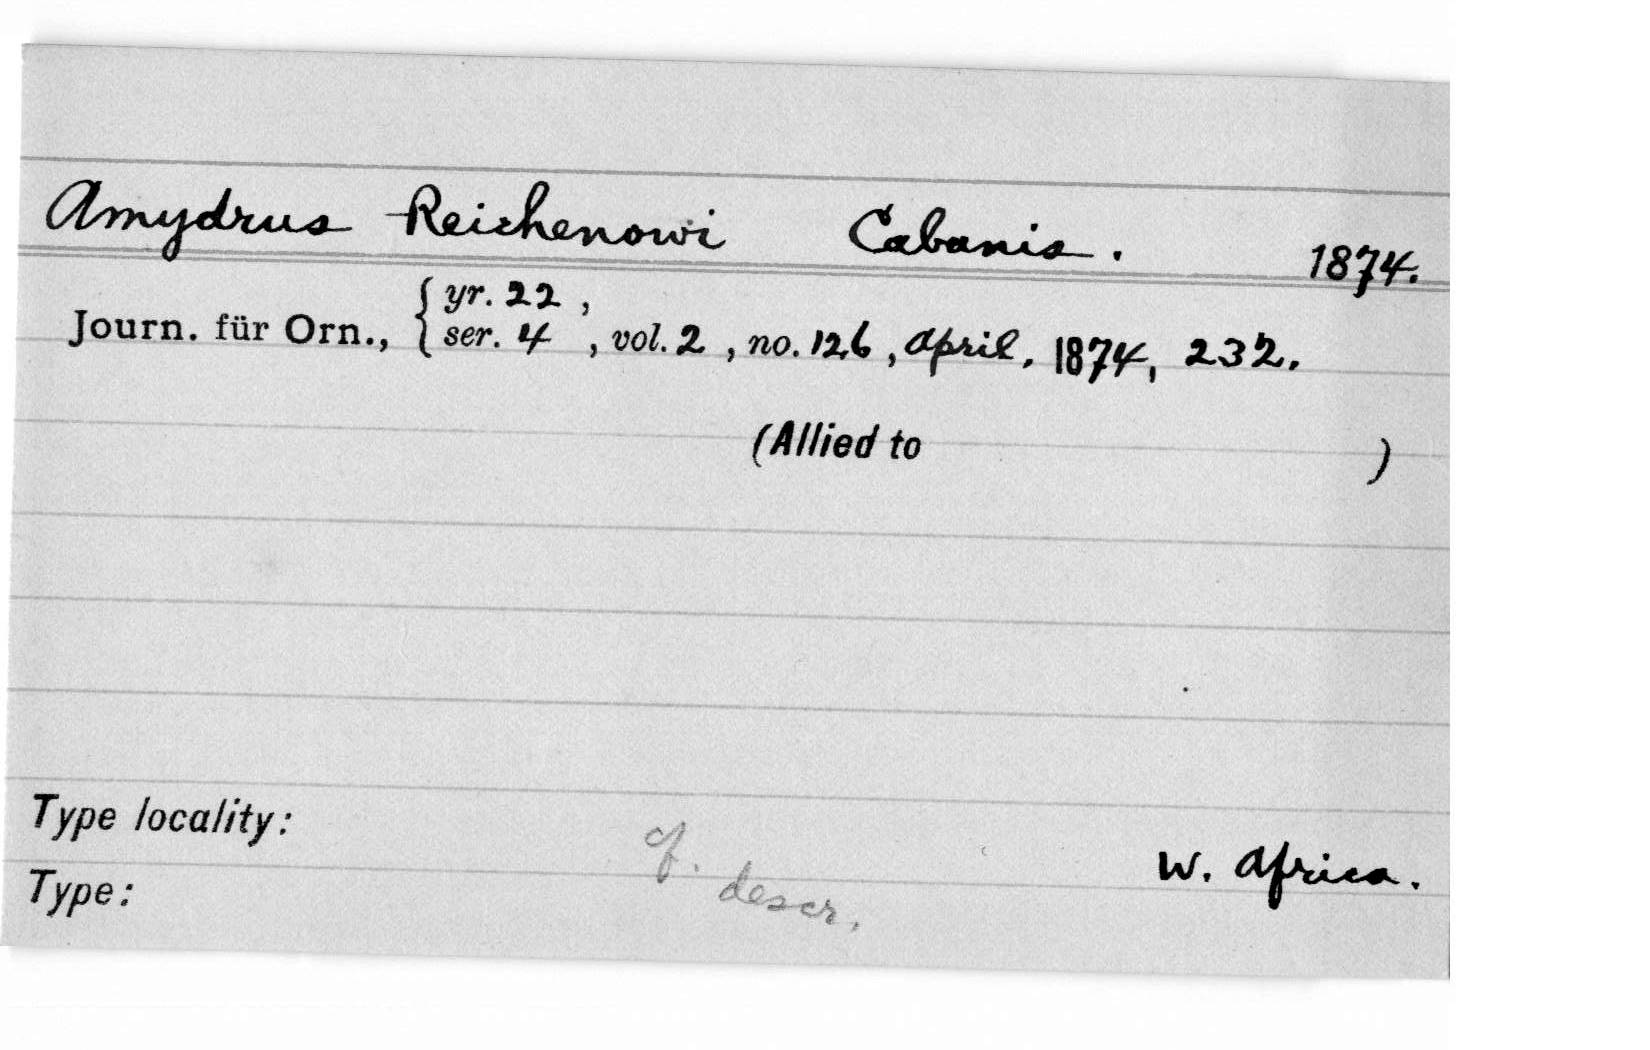 Amydrus Reichenowi Cabanis. 1874.
Journ. für Orn., { yr. 22 ,
ser. 4 , vol. 2 , no. 126 , April, 1874, 232.
(Allied to )
Type locality: W. Africa.
Type: cf. descr.